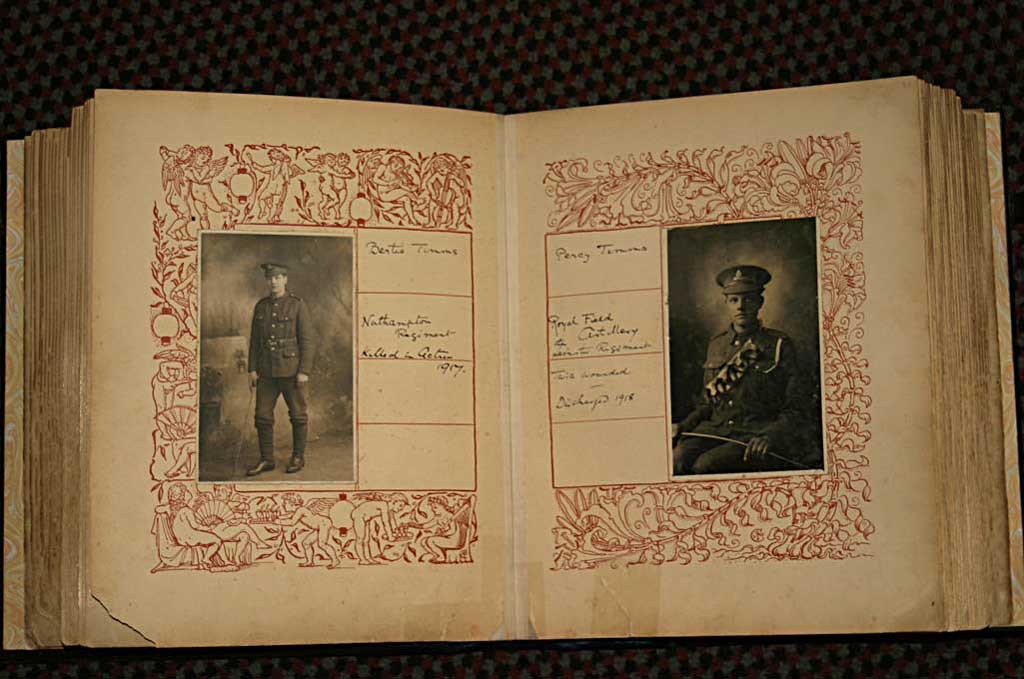 Bertie Timms
Nathampton
Regiment
Killed in Action
1917.
Percy Timms
Royal Field
Artillery
Regiment
Twice wounded
Discharged 1918